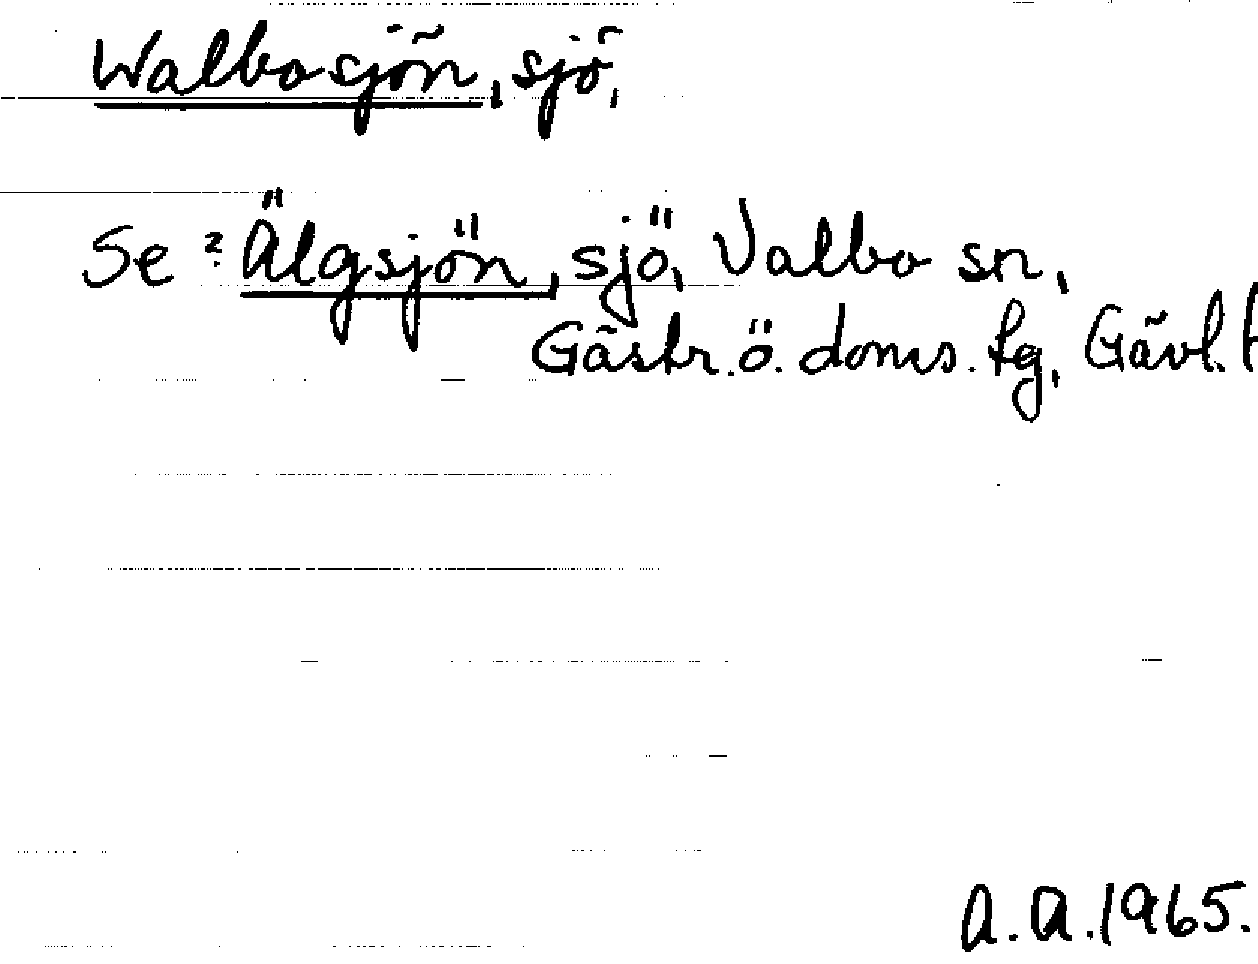 Walbosjön, sjö,
Se ? Älgsjön, sjö, Valbo sn,
Gästr. ö. doms. tg, Gävl.
A. A. 1965.